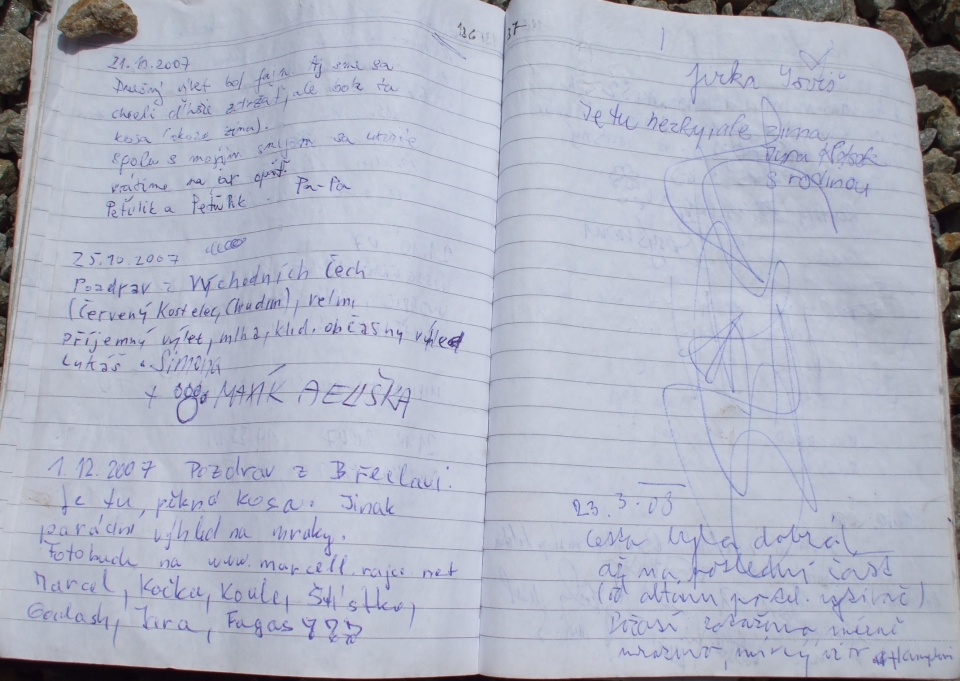 136
21.10.2007
Dnešný výlet bol fajn aj sme sa
chceli dlhšie zdržať, ale bola tu
kosa (
spolu s mojím sa určite
vrátime na jar opäť. Pa-Pa
Peťulik a Peťulik
25.10.2007
Pozdrav z Východních Čech
(Červený Kostelec, Chrudim), velmi
příjemný výlet, mlha, klid. občasný výhled
Lukáš + Simona
+ MAXÍK A ELIŠKA
1.12.2007 Pozdrav z Břeclavi.
Je tu, pěkná kosa. Jinak
parádní výhled na mraky.
Fotobude na www.marcell.rajce.net
Marcel, Kočka, Koule, Šťístko,
Goulash, Jara, Fagas
37
Jirka
Je tu hezky, ale zima
s rodinou
23.3.08
Cesta byla dobrá
až na poslední část
(od altánu
Počasí mírně
mrazivo, mírný